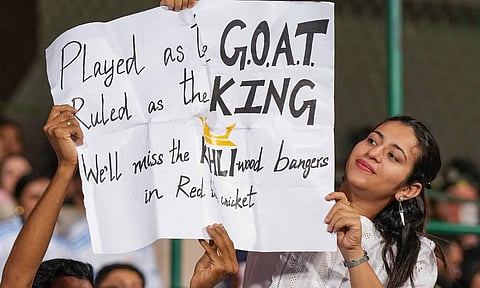 Played as G.O.A.T.
Ruled as the KING
We'll miss the KHLI wood bangers
in Red cricket